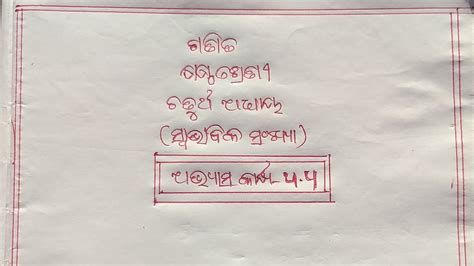 ଗଣିତ
ଷଷ୍ଠଶ୍ରେଣୀ
ଚତୁର୍ଥ ଅଧ୍ୟାୟ
(ସ୍ୱାଭାବିକ ସଂଖ୍ୟା)
ଅଭ୍ୟାସ କାର୍ଯ୍ୟ ୪.୪